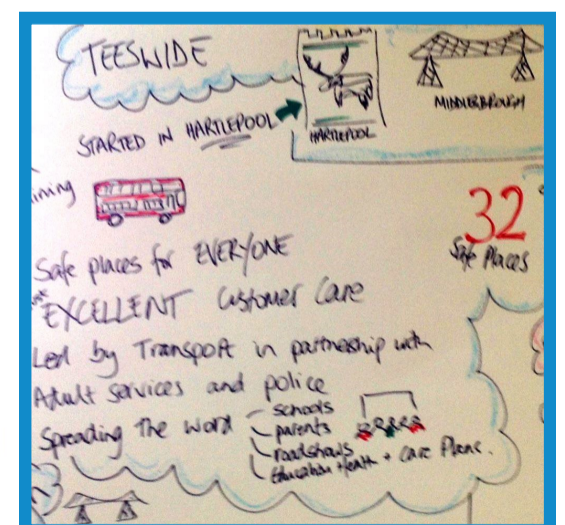 TEESWIDE
STARTED IN HARTLEPOOL
HARTLEPOOL
MIDDLESBROUGH
ining
32
Safe Places
Safe places for EVERYONE
EXCELLENT Customer Care
Led by Transport in partnership with
Adult Services and police
Spreading The word
schools
parents
roadshows
Education + Health + Care Plans.